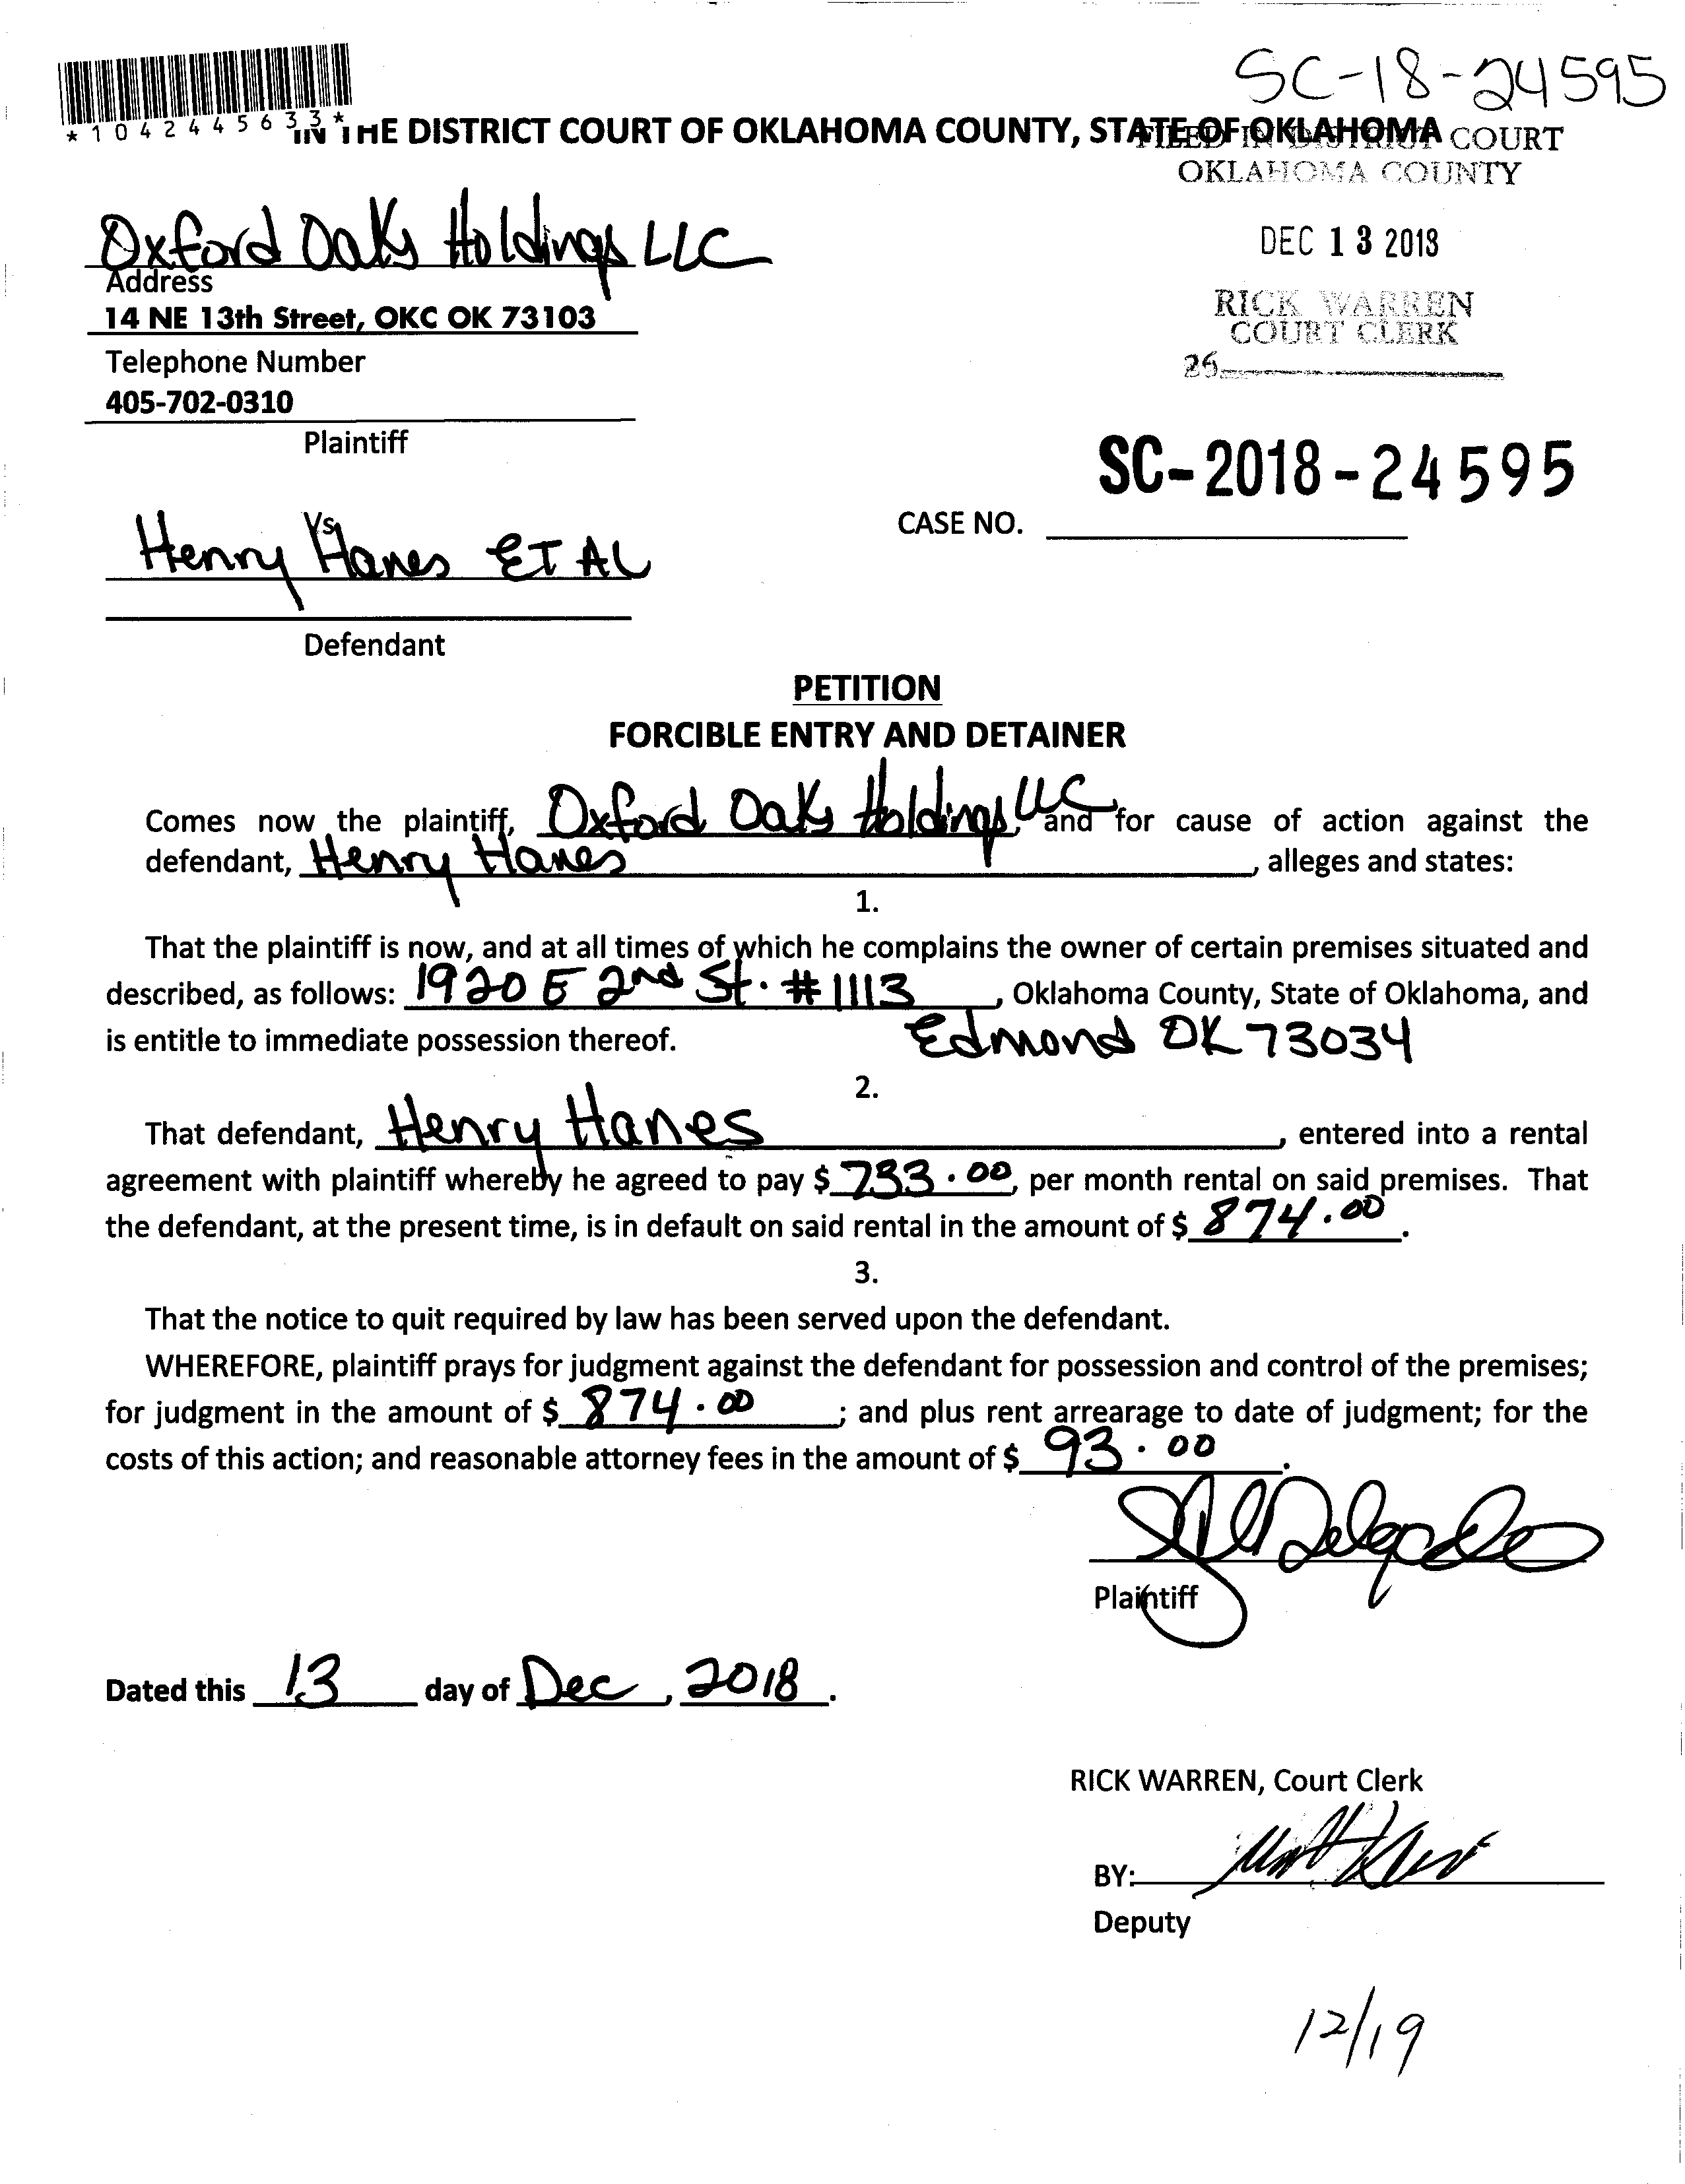 SC-18-24595
*1042445633*
IN THE DISTRICT COURT OF OKLAHOMA COUNTY, STATE OF OKLAHOMA
FILED IN DISTRICT COURT
OKLAHOMA COUNTY
Oxford Oaks Holdings LLC
DEC 13 2018
Address
14 NE 13th Street, OKC OK 73103
RICK WARREN
COURT CLERK
Telephone Number
405-702-0310
Plaintiff
SC-2018-24595
Vs
CASE NO.
Henry Hanes ET AL
Defendant
PETITION
FORCIBLE ENTRY AND DETAINER
Comes now the plaintiff, Oxford Oaks Holdings, LLC and for cause of action against the
defendant, Henry Hanes, alleges and states:
1.
That the plaintiff is now, and at all times of which he complains the owner of certain premises situated and
described, as follows: 1920 E 2nd St. #1113, Oklahoma County, State of Oklahoma, and
is entitle to immediate possession thereof. Edmond OK 73034
2.
That defendant, Henry Hanes, entered into a rental
agreement with plaintiff whereby he agreed to pay $ 733.00, per month rental on said premises. That
the defendant, at the present time, is in default on said rental in the amount of $ 874.00.
3.
That the notice to quit required by law has been served upon the defendant.
WHEREFORE, plaintiff prays for judgment against the defendant for possession and control of the premises;
for judgment in the amount of $ 874.00; and plus rent arrearage to date of judgment; for the
costs of this action; and reasonable attorney fees in the amount of $ 93.00.
Delgado
Plaintiff
Dated this 13 day of Dec, 2018.
RICK WARREN, Court Clerk
BY:
Deputy
12/19